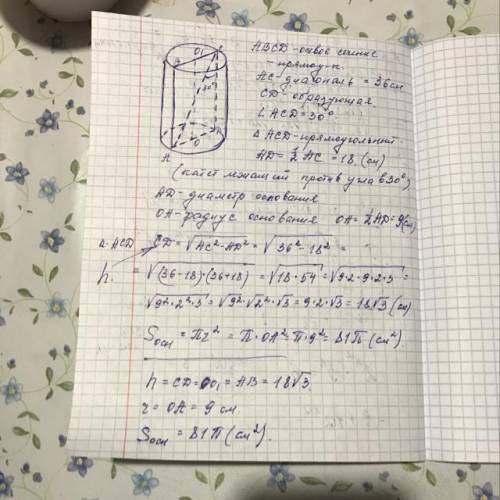 ABCD - осевое сечение
- прямоуг-к.
AC - диагональ = 36 см
CD - образующая
∠ACD = 30°
Δ ACD - прямоугольный
AD = ½ AC = 18 (см)
(катет лежащий против угла в 30°)
AD - диаметр основания
OA - радиус основания OA = ½ AD = 9 (см)
Δ ACD CD = √AC² - AD² = √36² - 18² =
h = √(36-18)·(36+18) = √18·54 = √9·2·9·2·3 =
√9²·2²·3 = √9²·√2²·√3 = 9·2·√3 = 18√3 (см)
Sосн = πr² = π·OA² = π·9² = 81π (см²).
h = CD = OO₁ = AB = 18√3
r = OA = 9 см
Sосн = 81π (см²).
A
O
O₁
30°